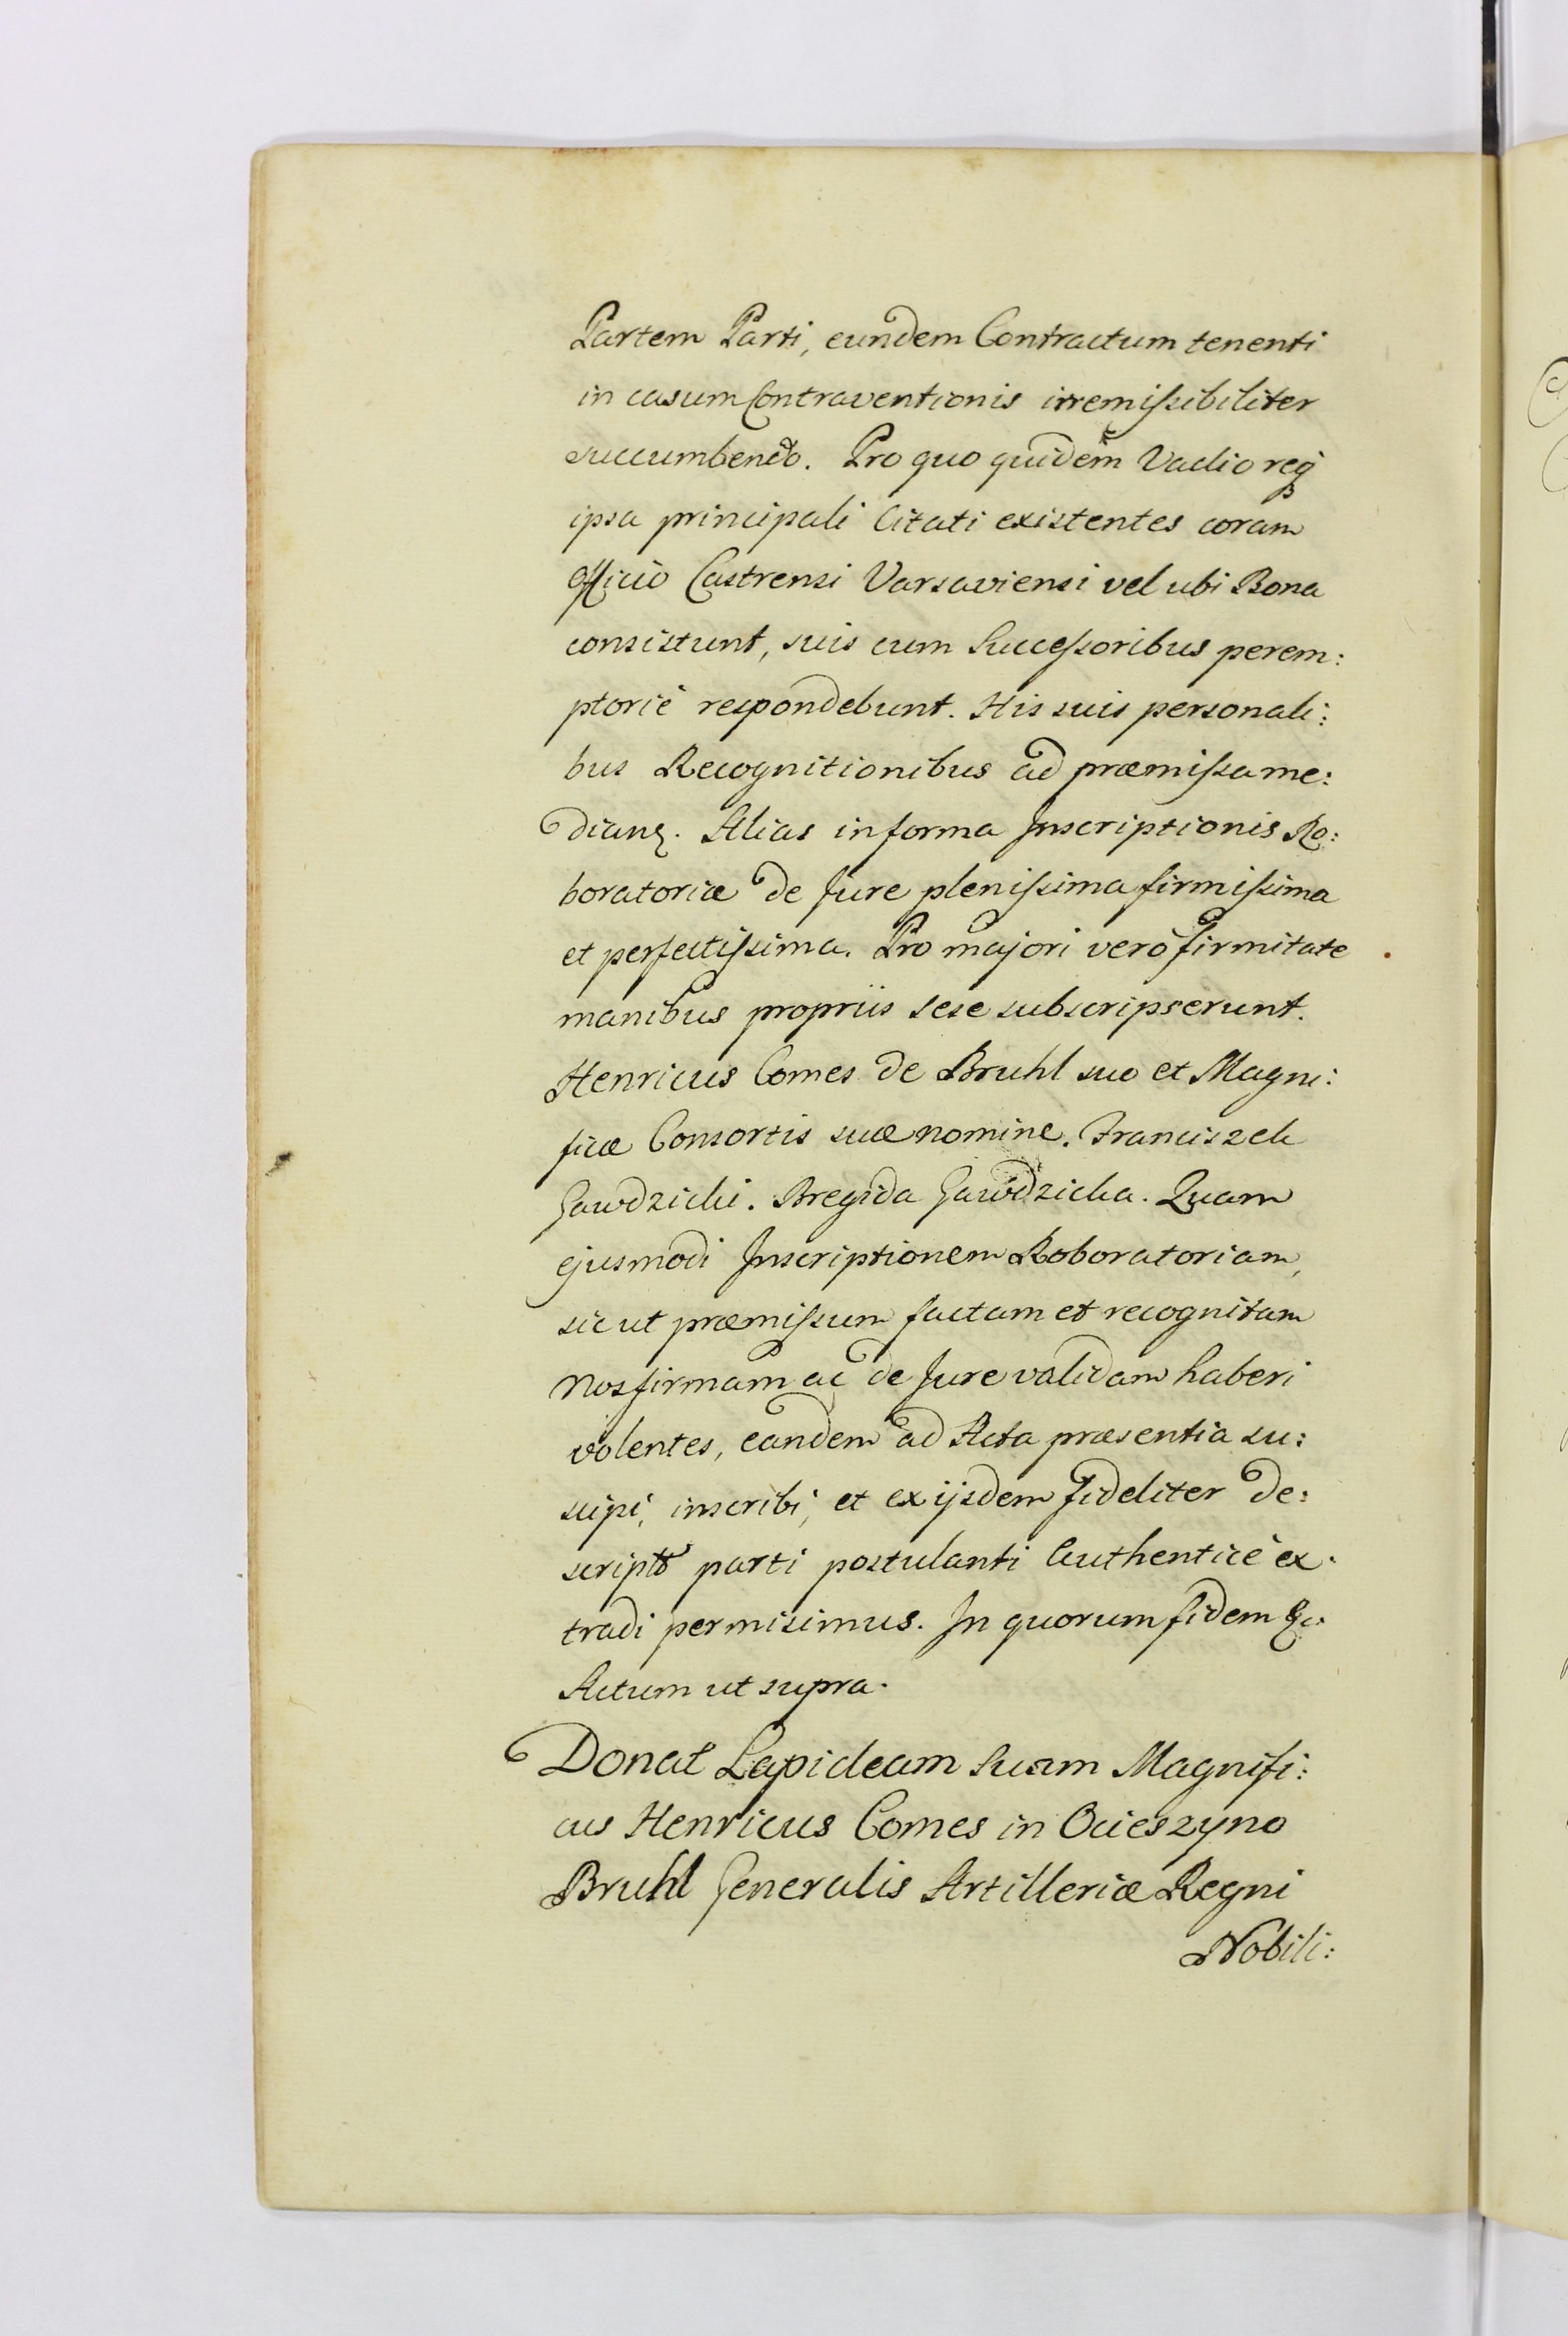 Partem Parti, eundem Contractum tenenti
in casum Contraventionis irremissibiliter
succumbendo. Pro quo quidem Vadio req
ipsa principali Citati existentes coram
Officio Castrensi Varsaviensi vel ubi Bona
consistunt, suis cum Successoribus perem:
ptorie respondebunt. His suis personali:
bus Recognitionibus ad præmissa me:
dian. Alias in forma Inscriptionis Ro:
boratoriæ de Jure plenissima firmissima
et perfectissima. Pro majori verò firmitate
manibus propriis sese subscripserunt.
Henricus Comes de Bruhl suo et Magni:
ficæ Consortis suæ nomine. Franciszek
Gawdzicki. Bregida Gawdzicka. Quam
ejusmodi Inscriptionem Roboratoriam,
sic ut præmissum factam et recognitam
Nos firmam ac de Jure validam haberi
volentes, eandem ad Acta præsentia su:
scipi, inscribi, et ex ijsdem fideliter de:
scripto parti postulanti Authenticè ex:
tradi permisimus. In quorum fidem &c.
Actum ut supra.
Donat Lapideam Suam Magnifi:
cus Henricus Comes in Ocieszyno
Bruhl Generalis Artilleriæ Regni
Nobili: